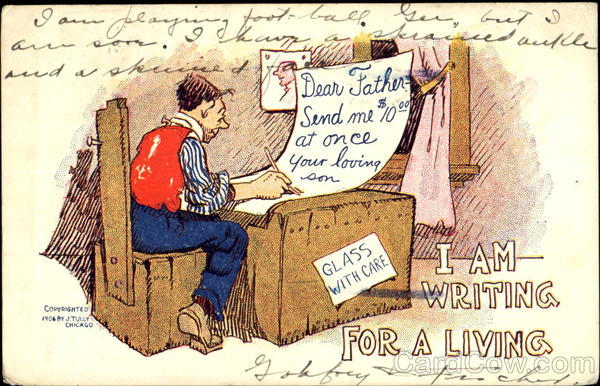 I am playing foot-ball Gee, but I
am sore. I have a sprained ankle
and a skinned
Dear Father-
Send me $10.00
at once
your loving
son
GLASS
WITH CARE
I AM
WRITING
FOR A LIVING
COPYRIGHTED
1906 BY J. TULLY
CHICAGO
CardCow.com